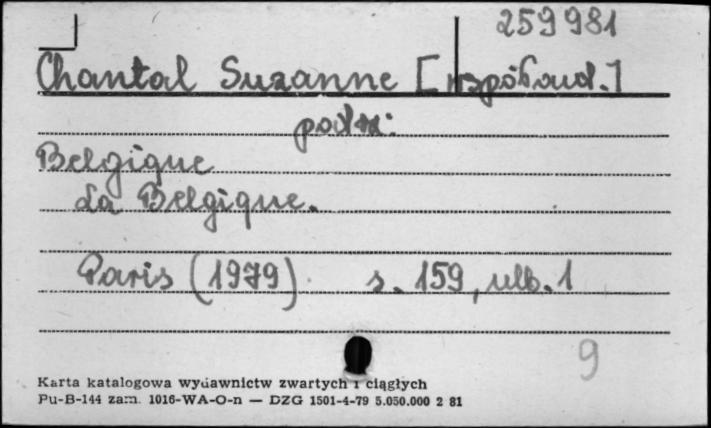 259981
Chantal Suzanne [współaud.]
patrz:
Belgique
La Belgique.
Paris (1979). s. 159, ulb. 1
9
Karta katalogowa wydawnictw zwartych i ciągłych
Pu-B-144 zam. 1016-WA-O-n — DZG 1501-4-79 5.050.000 2 81